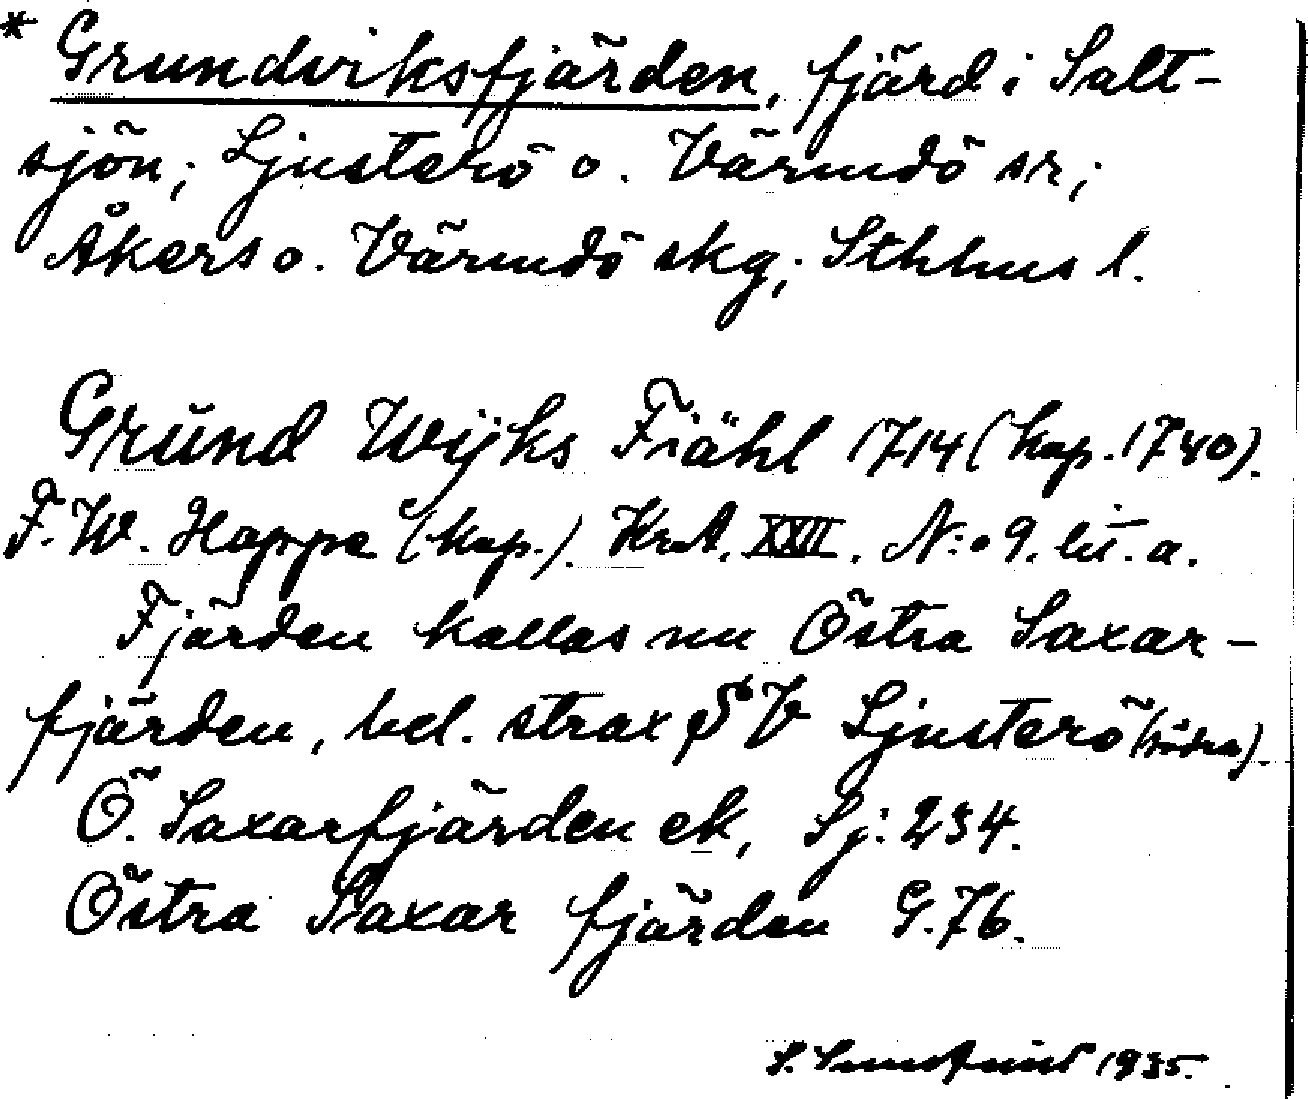 * Grundviksfjärden, fjärd i Salt-
sjön; Ljusterö o. Värmdö sn;
Åkers o. Värmdö skg; Sthlms l.
Grŭnd Wijks Fiähl 1714 (kop. 1740).
F. W. Hoppe (kop.). KrA. XXII. N:o 9. litt. a.
Fjärden kallas nu Östra Saxar-
fjärden, bel. strax SV Ljusterö (södra).
Ö. Saxarfjärden ek, Sj: 234.
Östra Saxar fjärden G. 76.
S. 1935.